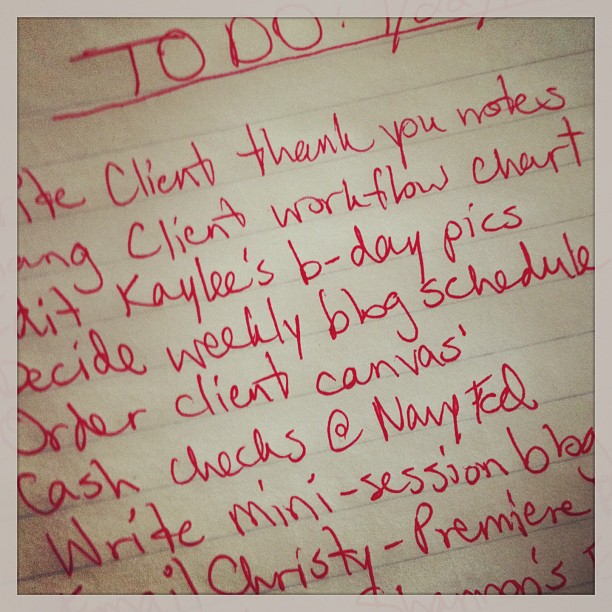 TO DO:
ite Client thank you notes
ang Client workflow chart
dit Kaylee's b-day pics
Decide weekly blog schedule
Order client canvas'
Cash checks @ Navy Fed
Write mini-session blog
Email Christy-Premiere
Shannon's